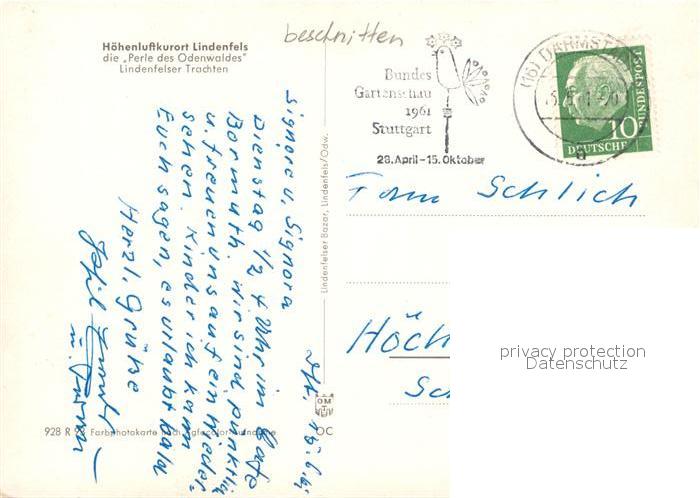 beschnitten
Höhenluftkurort Lindenfels
die „Perle des Odenwaldes"
Lindenfelser Trachten
Bundes
Gartenschau
1961
Stuttgart
28. April – 15. Oktober
(16) DARMSTADT
a
10
DEUTSCHE
BUNDESPOST
Signore u. Signora
Dienstag 1/2 4 Uhr im Cafe
Bormuth. Wir sind pünktlich
u. freuen uns auf ein Wieder-
sehen. Kinder ich kann
Euch sagen, es urlaubt bald
Herzl. Grüße
Lindenfelser Bazar, Lindenfels/Odw.
Fam Schlich
Höch
Sc
privacy protection
Datenschutz
928 R 98 Farbphotokarte nach Agfacolor-Aufnahme
OM
OC